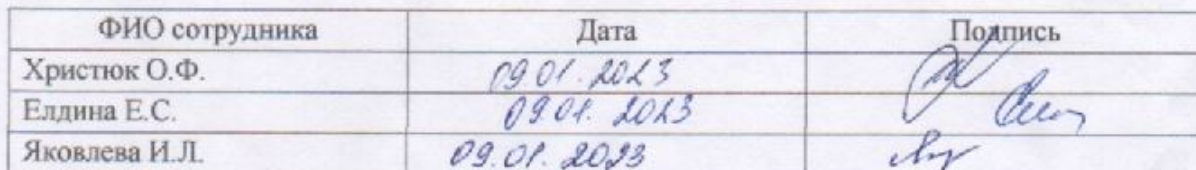 ФИО сотрудника Дата Подпись
Христюк О.Ф. 09.01.2023
Елдина Е.С. 09.01.2023
Яковлева И.Л. 09.01.2023